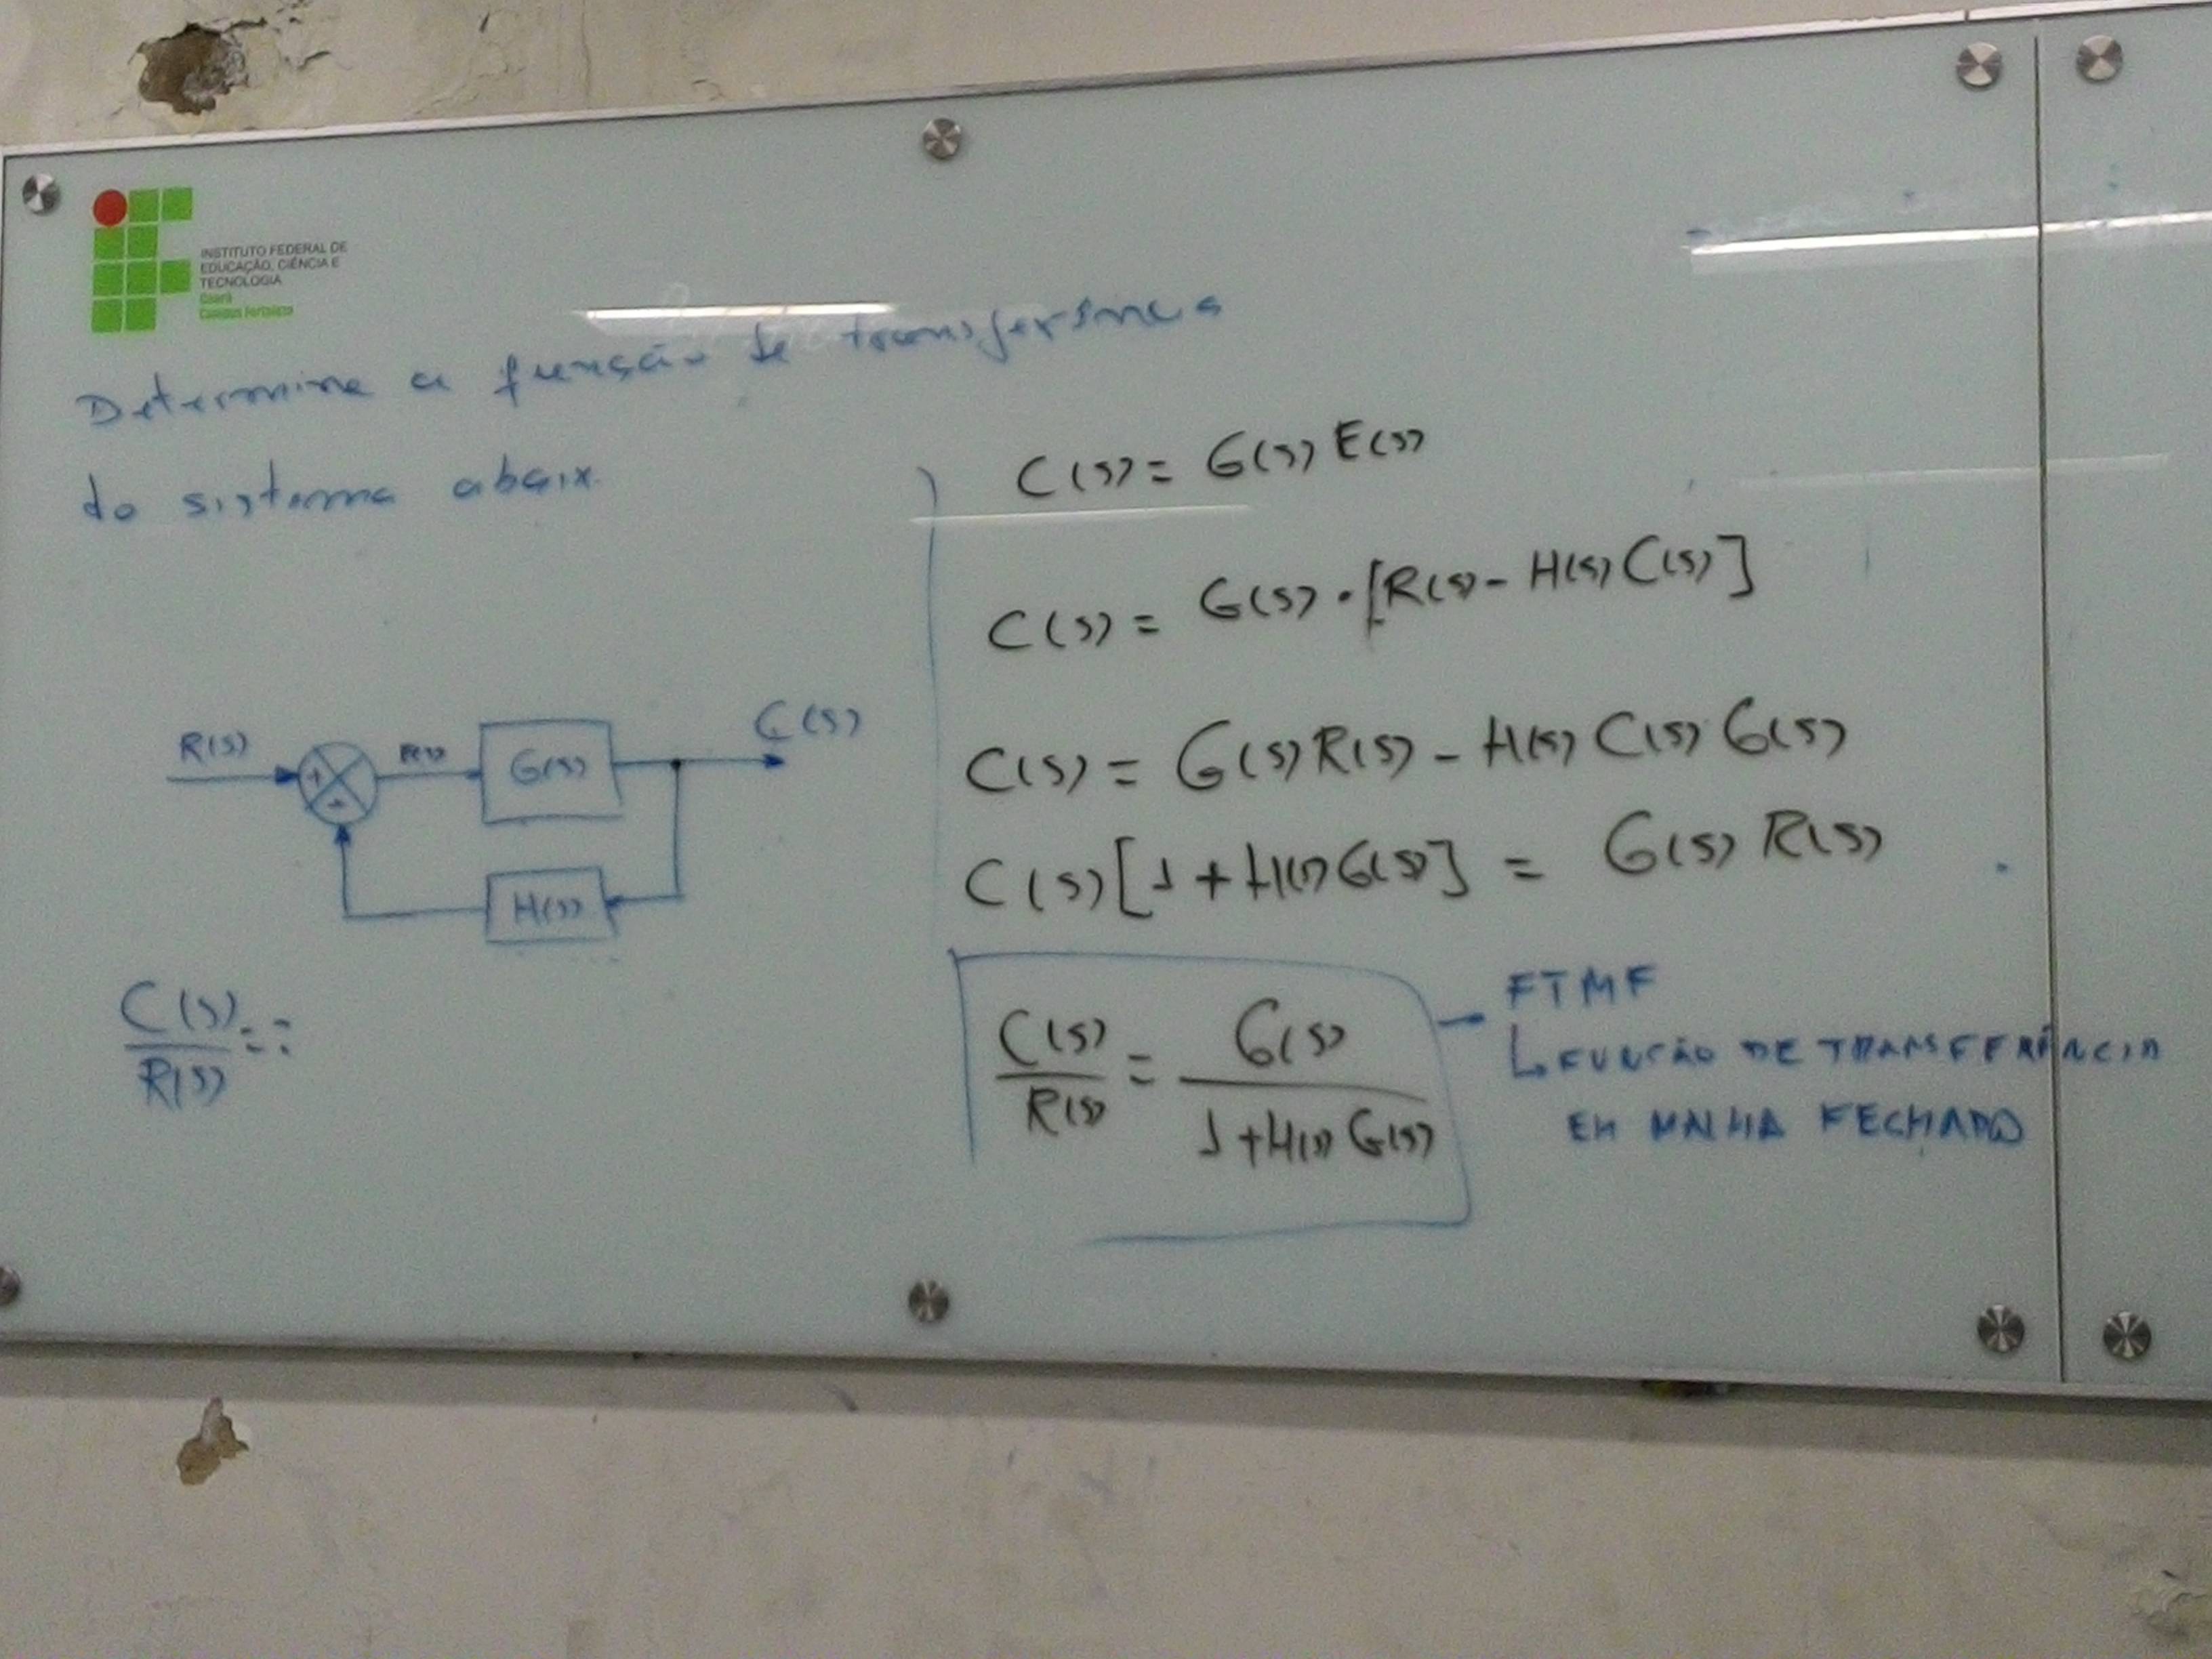 INSTITUTO FEDERAL DE
EDUCAÇÃO, CIÊNCIA E
TECNOLOGIA
Ceará
Campus Fortaleza
Determine a função de transferência
do sistema abaix
R(s)
+
+
G(s)
C(s)
H(s)
C(s)/R(s) =
C(s) = G(s) E(s)
C(s) = G(s) · [R(s) - H(s) C(s)]
C(s) = G(s) R(s) - H(s) C(s) G(s)
C(s) [1 + H(s) G(s)] = G(s) R(s)
C(s)/R(s) = G(s)/1 + H(s) G(s)
FTMF
FUNÇÃO DE TRANSFERÊNCIA
EM MALHA FECHADA